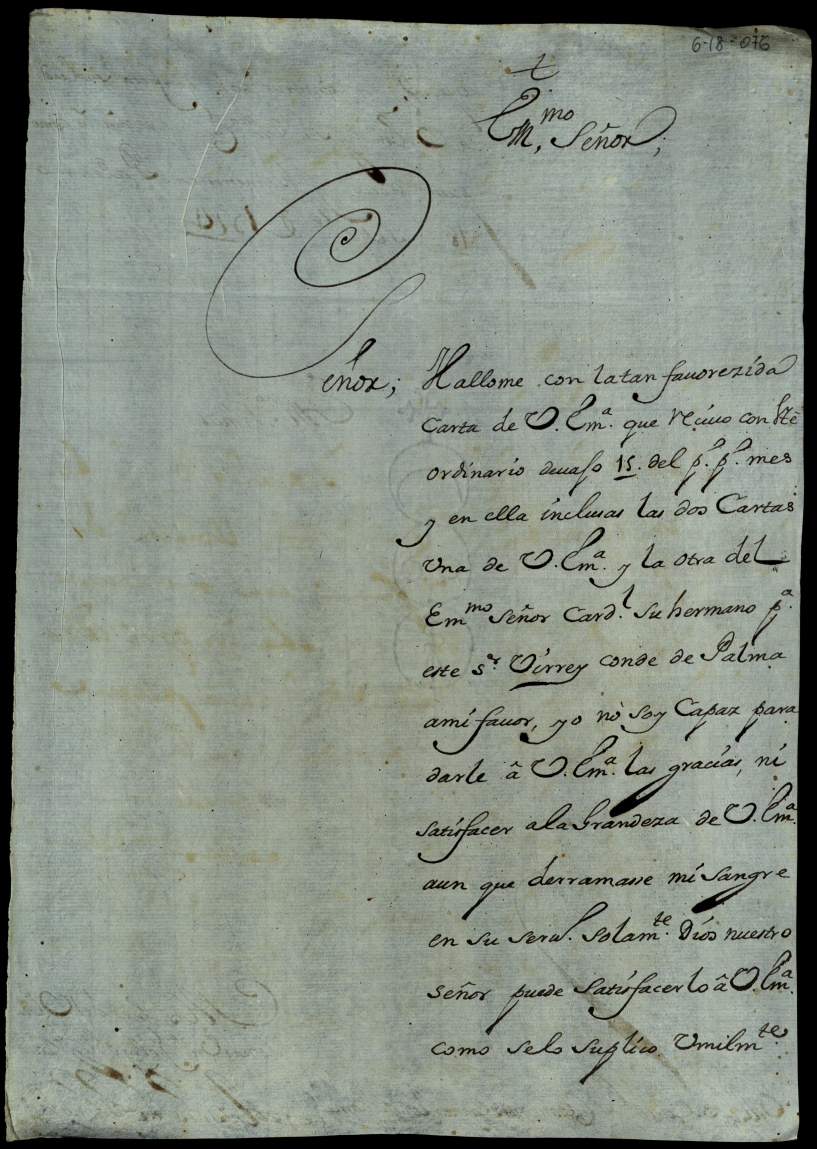 6-18-076
t
Em.mo Señor;
Señor; Hallome con latan fauorezida
Carta de V. Em.ª que reciuo con este
ordinario deuajo 15. del p.º p.º mes
y en ella inclusas las dos Cartas
Vna de V. Em.ª y la otra del
Emmo Señor Card.l Su hermano p.ª
este s.r Virrey conde de Palma
ami fauor, yo nò Soy Capaz para
darle â V. Em.ª las gracias, ni
Satisfacer ala Grandeza de V. Em.ª
aun que derramasse mi Sangre
en su seru.º Solam.te Dios nuestro
Señor puede Satisfacerlo â V. Em.ª
como selo Suplico Vmilm.te